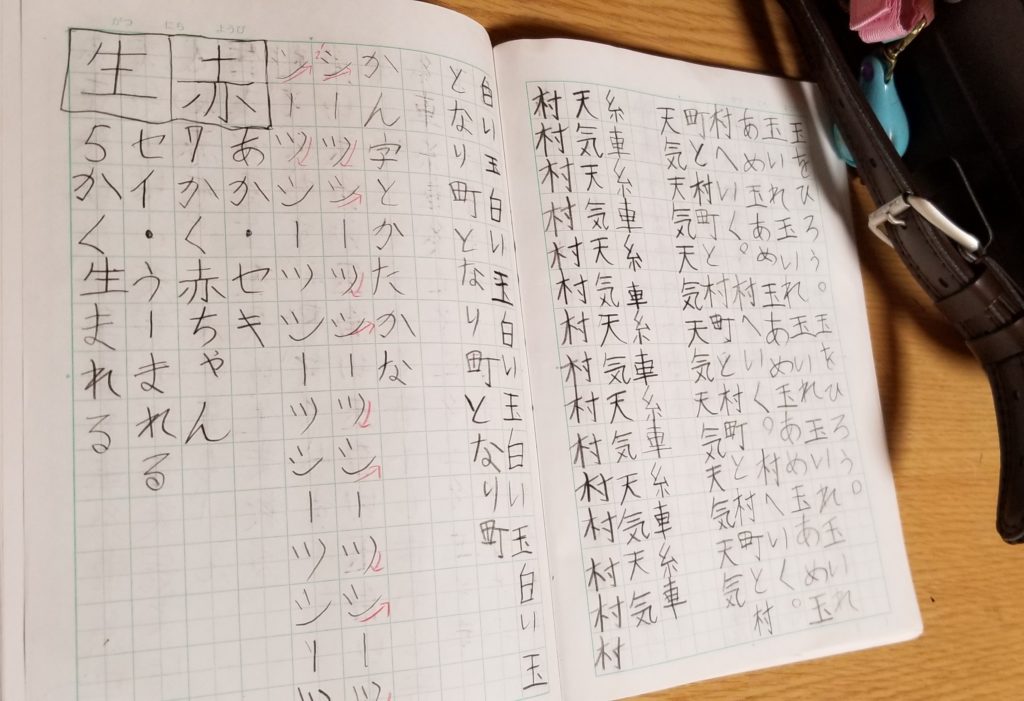 玉をひろう。玉をひろう。
玉いれ玉いれ玉いれ玉いれ玉いれ
あめ玉あめ玉あめ玉あめ玉あめ玉
村へいく。村へいく。村へいく。
町と村町と村町と村町と村町と村
天気天気天気天気天気天気天気
糸車糸車糸車糸車糸車糸車糸車
天気天気天気天気天気天気天気
村村村村村村村村村村村村村村村
白い玉白い玉白い玉白い玉白い玉
となり町となり町となり町
がつ にち ようび
かん字とかたかな
シーツシーツシーツシーツシーツ
シーツシーツシーツシーツシーツ
赤
あか・セキ
7かく赤ちゃん
生
セイ・うーまれる
5かく生まれる